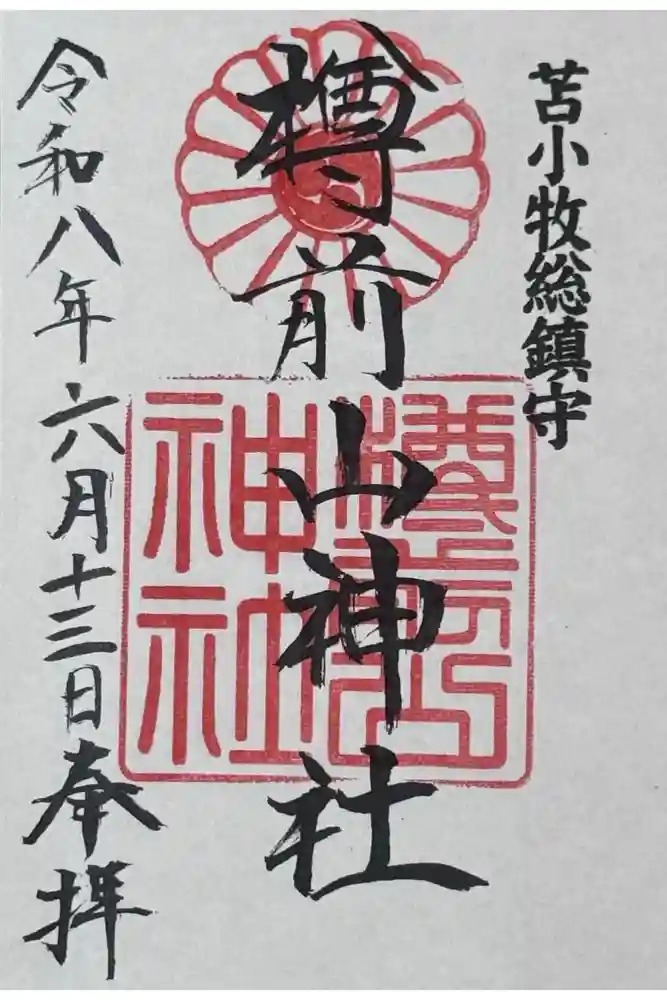 苫小牧総鎮守
樽前山神社
樽前山
神社
令和八年六月十三日奉拝